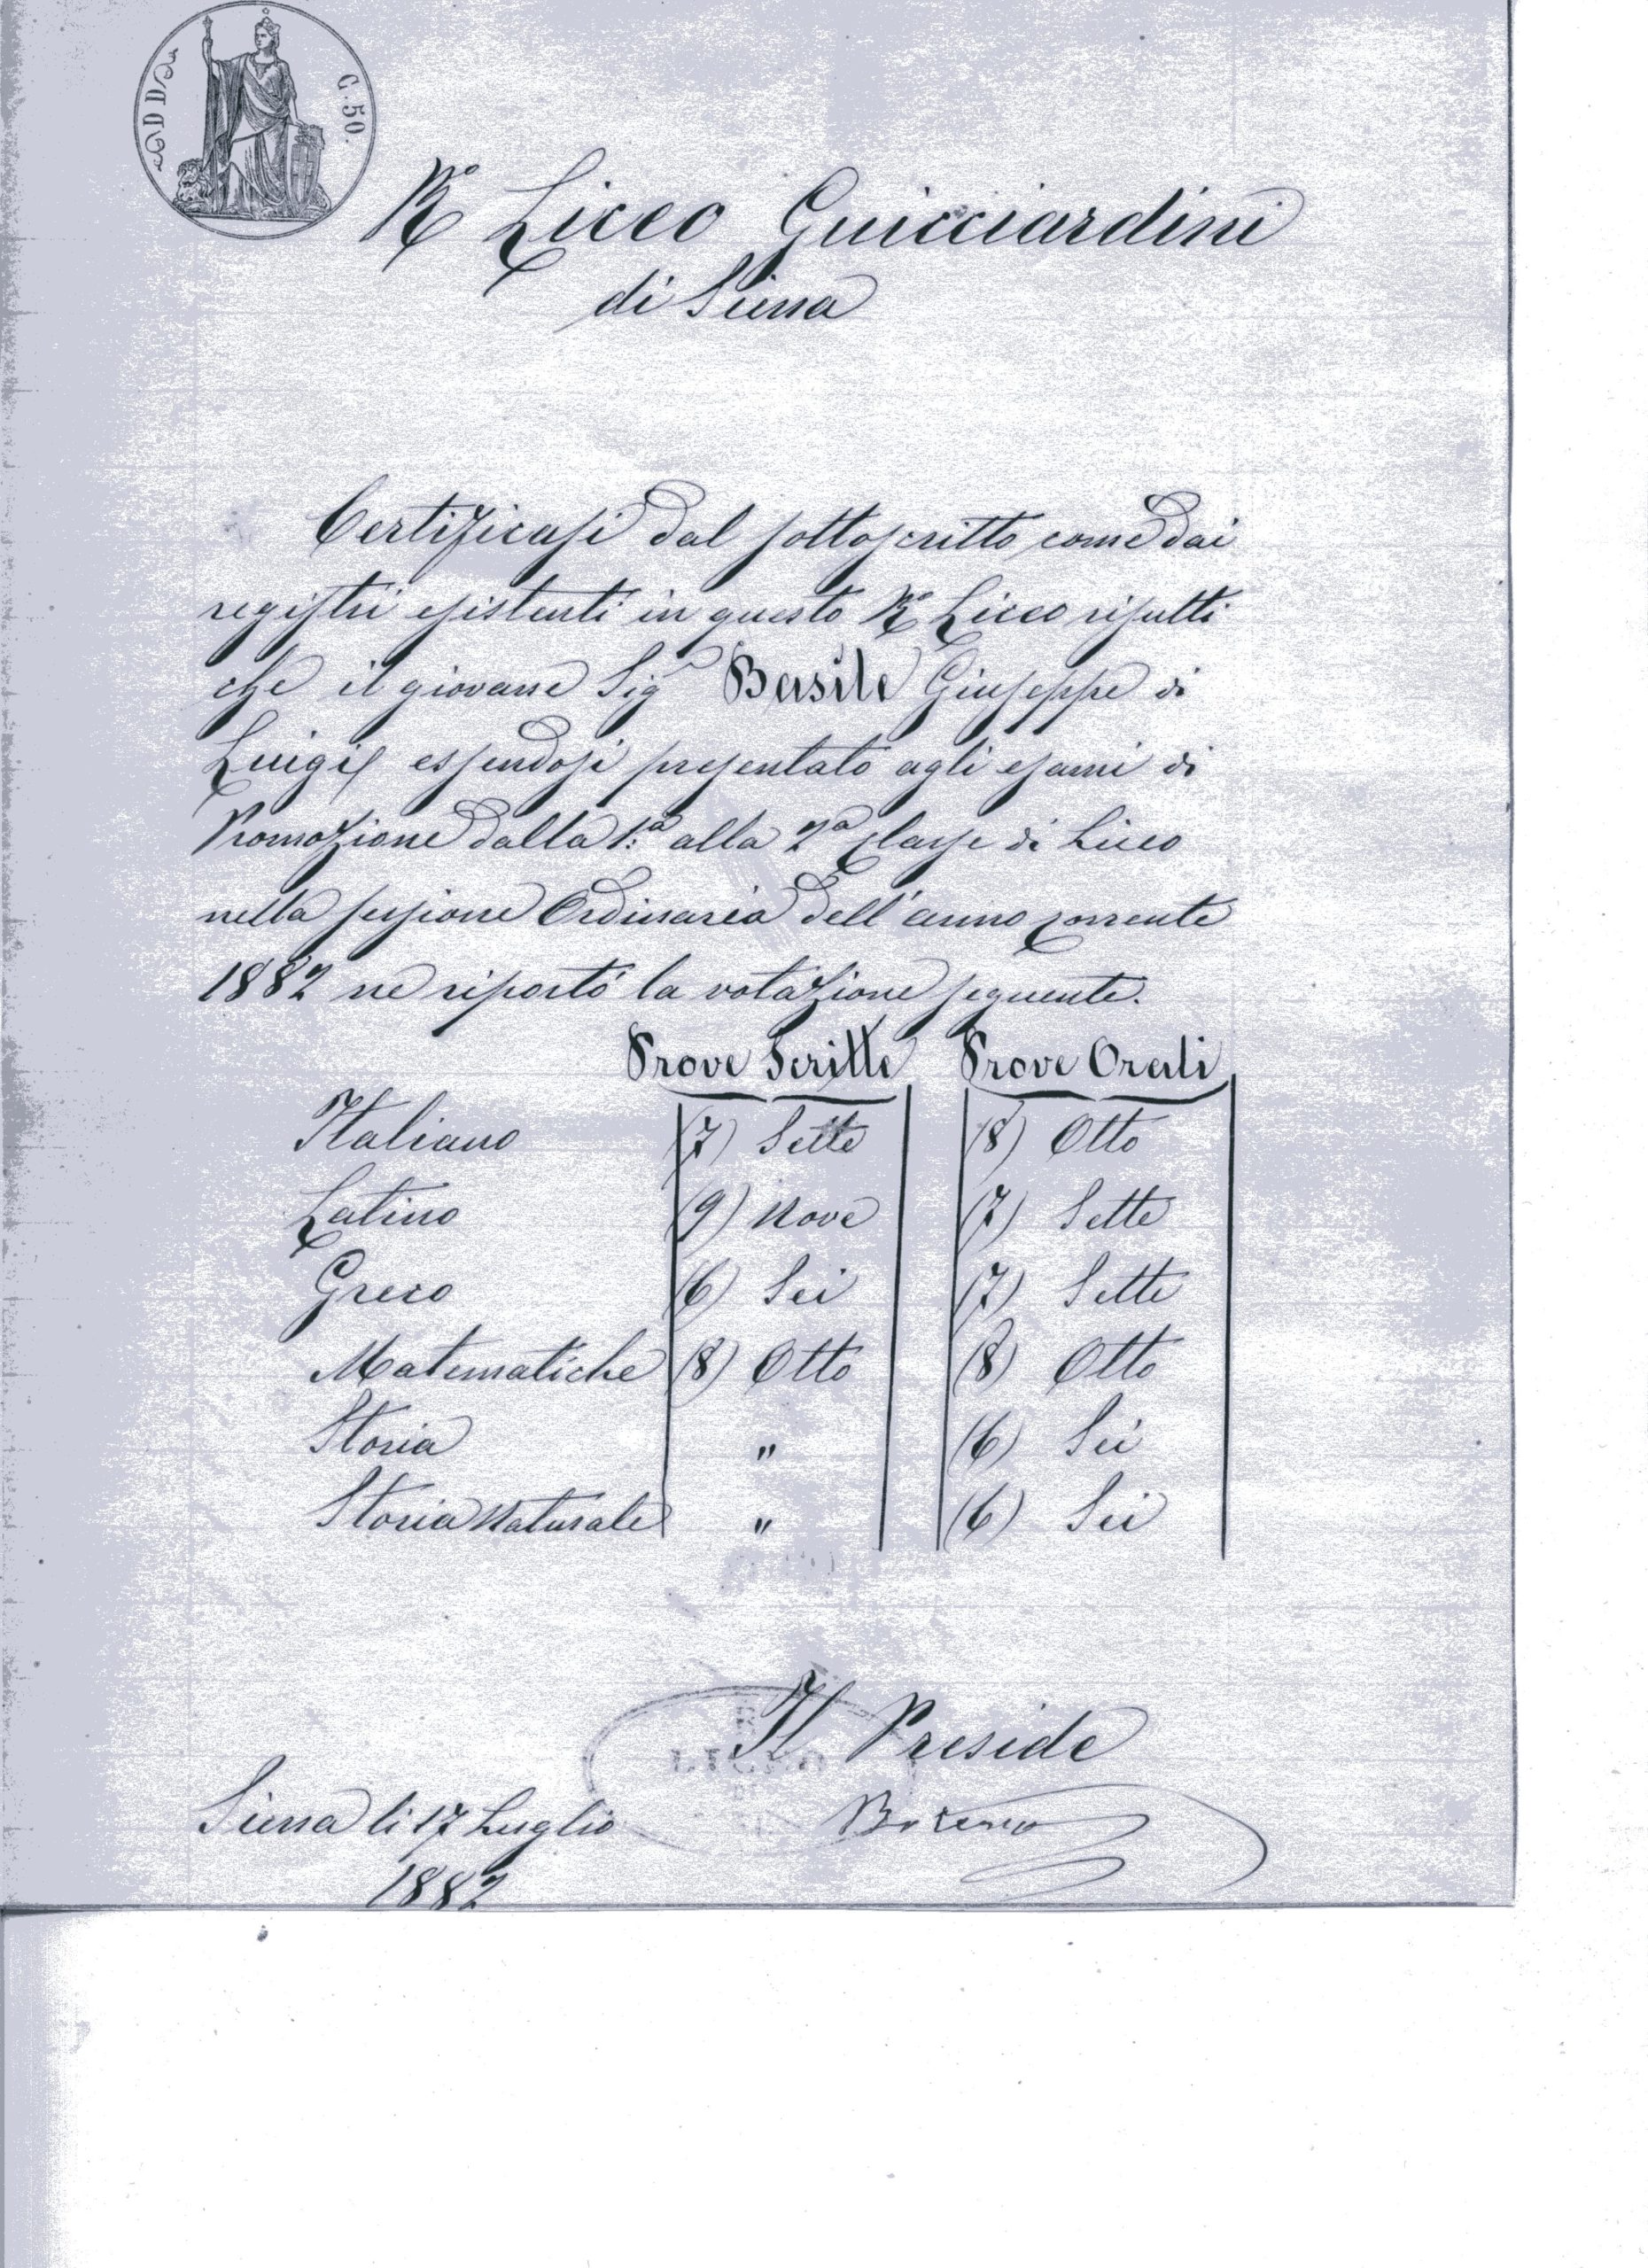 C. 50.
R.º Liceo Guicciardini
di Siena
Certificasi dal sottoscritto come dai
registri esistenti in questo R.º Liceo risulti
che il giovane Sig.r Basile Giuseppe di
Luigi essendosi presentato agli esami di
Promozione dalla 1.ª alla 2ª Classe di Liceo
nella sessione Ordinaria dell'anno corrente
1882 ne riportó la votazione seguente.
Prove Scritte Prove Orali
Italiano (7) Sette (8) Otto
Latino (9) Nove (7) Sette
Greco (6) Sei (7) Sette
Matematiche (8) Otto (8) Otto
Storia " (6) Sei
Storia Naturale " (6) Sei
Il Preside
Siena li 17 Luglio
1882